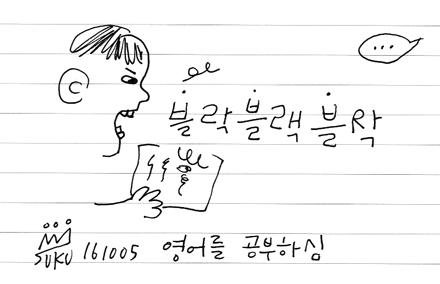 ...
블락블랙블롹
SUKU 161005 영어를 공부하심